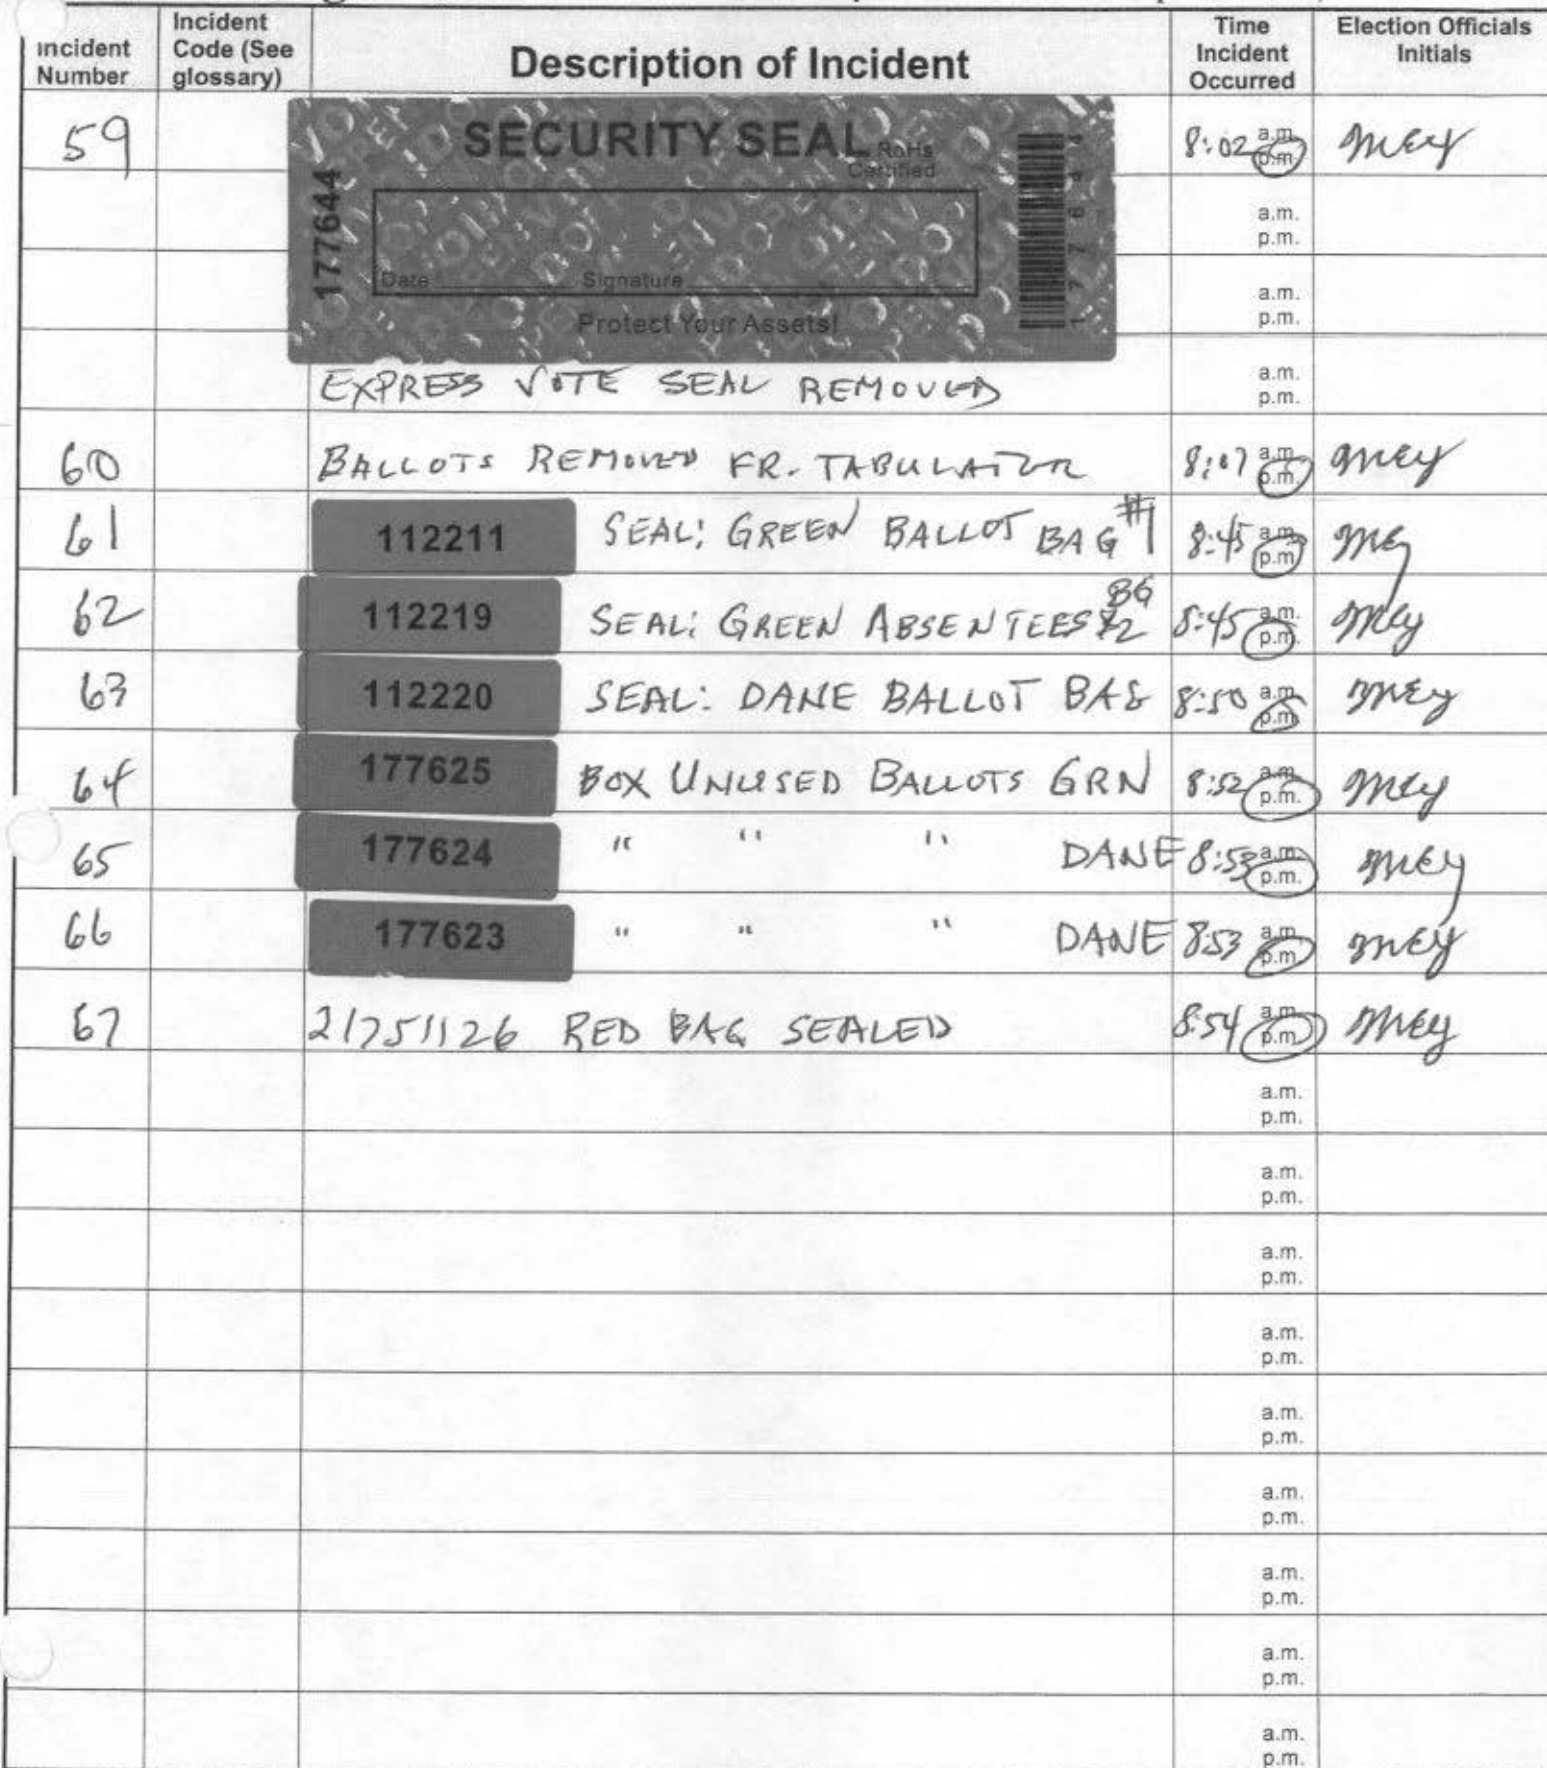 Incident Number
Incident Code (See glossary)
Description of Incident
Time Incident Occurred
Election Officials Initials
59
SECURITY SEAL
RoHs Certified
177644
Date Signature
Protect Your Assets!
177644
8:02 a.m. p.m. MEY
a.m. p.m.
a.m. p.m.
EXPRESS VOTE SEAL REMOVED a.m. p.m.
60 BALLOTS REMOVED FR. TABULATOR 8:07 a.m. p.m. MEY
61 112211 SEAL: GREEN BALLOT BAG #1 8:45 a.m. p.m. MEY
62 112219 SEAL: GREEN ABSENTEES BG #2 8:45 a.m. p.m. MEY
63 112220 SEAL: DANE BALLOT BAG 8:50 a.m. p.m. MEY
64 177625 BOX UNUSED BALLOTS GRN 8:52 a.m. p.m. MEY
65 177624 " " " DANE 8:53 a.m. p.m. MEY
66 177623 " " " DANE 8:53 a.m. p.m. MEY
67 21751126 RED BAG SEALED 8:54 a.m. p.m. MEY
a.m. p.m.
a.m. p.m.
a.m. p.m.
a.m. p.m.
a.m. p.m.
a.m. p.m.
a.m. p.m.
a.m. p.m.
a.m. p.m.